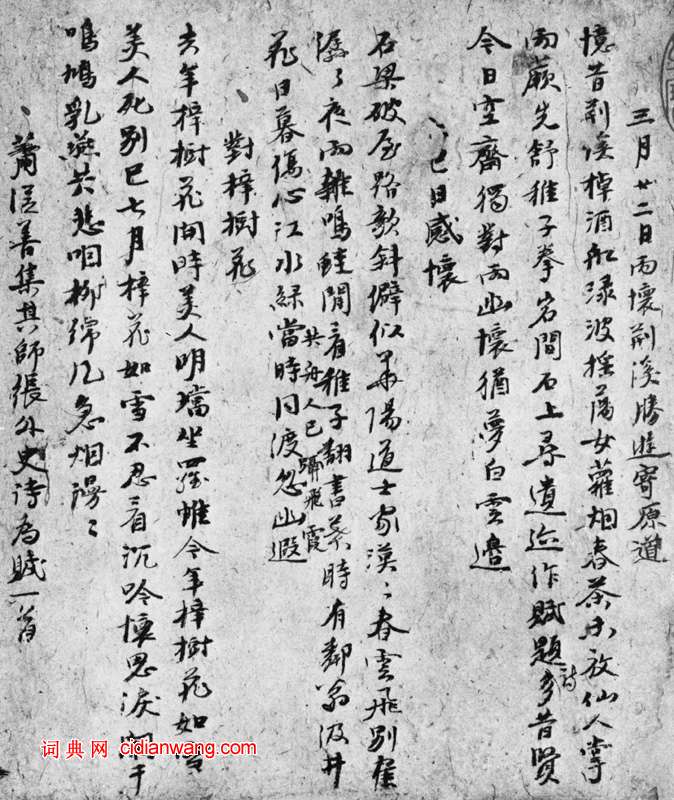 三月廿二日雨懷荊溪勝遊寄原道
憶昔荊溪棹酒船淥波搖蕩女蘿烟春茶未放仙人掌
雨蕨先舒稚子拳岩間石上尋遺迹作賦題詩多昔賢
今日空齋獨對雨幽懷猶夢白雲邊
巳日感懷
石梁破屋路欹斜僻似華陽道士家漠〻春雲飛別隺
潺〻夜雨雜鳴蛙閒看稚子翻書葉時有鄰翁汲井
共舟人已躡飛霞
花日暮傷心江水綠當時同渡忽幽遐
對梓樹花
去年梓樹花開時美人明璫坐羅帷今年梓樹花如雪
美人死別已七月梓花如雪不忍看沉吟懷思淚闌干
鳴鳩乳燕共悲咽柳綿風急烟漫〻
蕭從善集其師張外史詩為賦一首
词典网 cidianwang.com